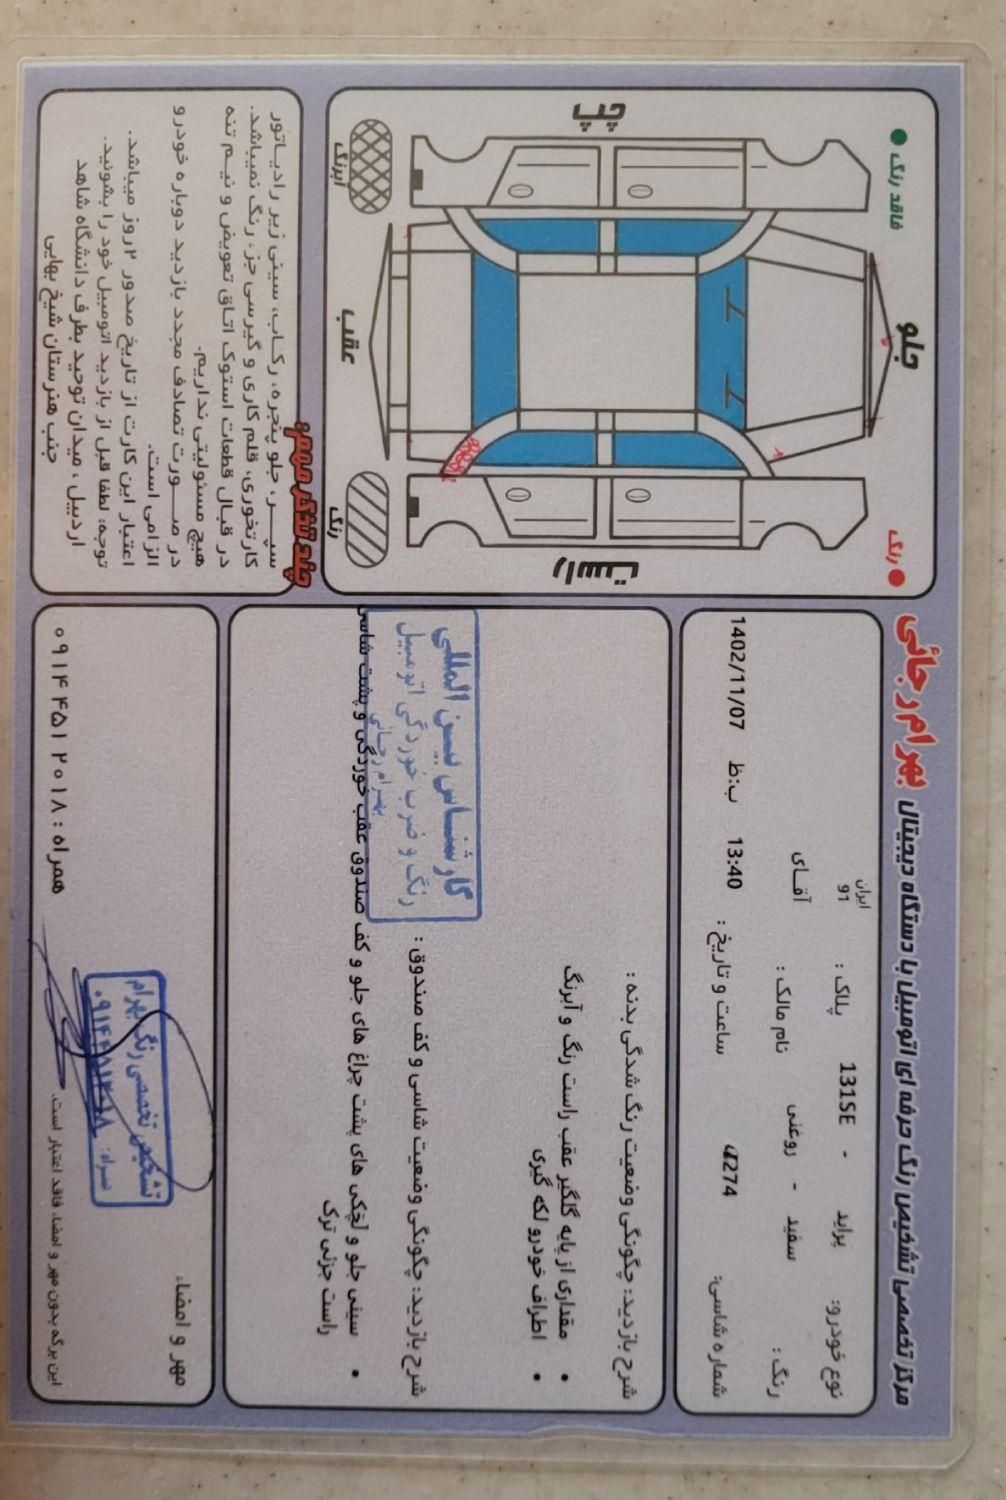 مرکز تخصصی تشخیص رنگ حرفه ای اتومبیل با دستگاه دیجیتال بهرام رجائی
نوع خودرو: پراید - 131SE پلاک: ایران 91
رنگ: سفید - روغنی نام مالک: آقای
شماره شاسی: 7274 ساعت و تاریخ: 13:40 ب:ظ 1402/11/07
شرح بازدید: چگونگی وضعیت رنگ شدگی بدنه:
• مقداری از پایه گلگیر عقب راست رنگ و آبرنگ
• اطراف خودرو لکه گیری
شرح بازدید: چگونگی وضعیت شاسی و کف صندوق:
• سینی جلو و لچکی های پشت چراغ های جلو و کف صندوق عقب خوردگی و پشت شاسی راست جزئی ترک
کارشناس بین المللی
رنگ و ضرب خوردگی اتومبیل
بهرام رجائی
مهر و امضاء
تشخیص تخصصی رنگ بهرام
همراه:
همراه: ۰۹۱۴۴۵۱۲۰۱۸
این برگه بدون مهر و امضاء، فاقد اعتبار است.
رنگ
فاقد رنگ
جلو
راست
چپ
عقب
رنگ
آبرنگ
چند تذکر مهم:
سپر، جلو پنجره، رکاب، سینی زیر رادیاتور
کارتخوری، قلم کاری و گیرسی جزء رنگ نمیباشد.
در قبال قطعات استوک اتاق تعویض و نیم تنه
هیچ مسئولیتی نداریم.
در صورت تصادف مجدد بازدید دوباره خودرو
الزامی است.
اعتبار این کارت از تاریخ صدور ۲روز میباشد.
توجه: لطفا قبل از بازدید اتومبیل خود را بشوئید.
اردبیل، میدان توحید بطرف دانشگاه شاهد
جنب هنرستان شیخ بهایی